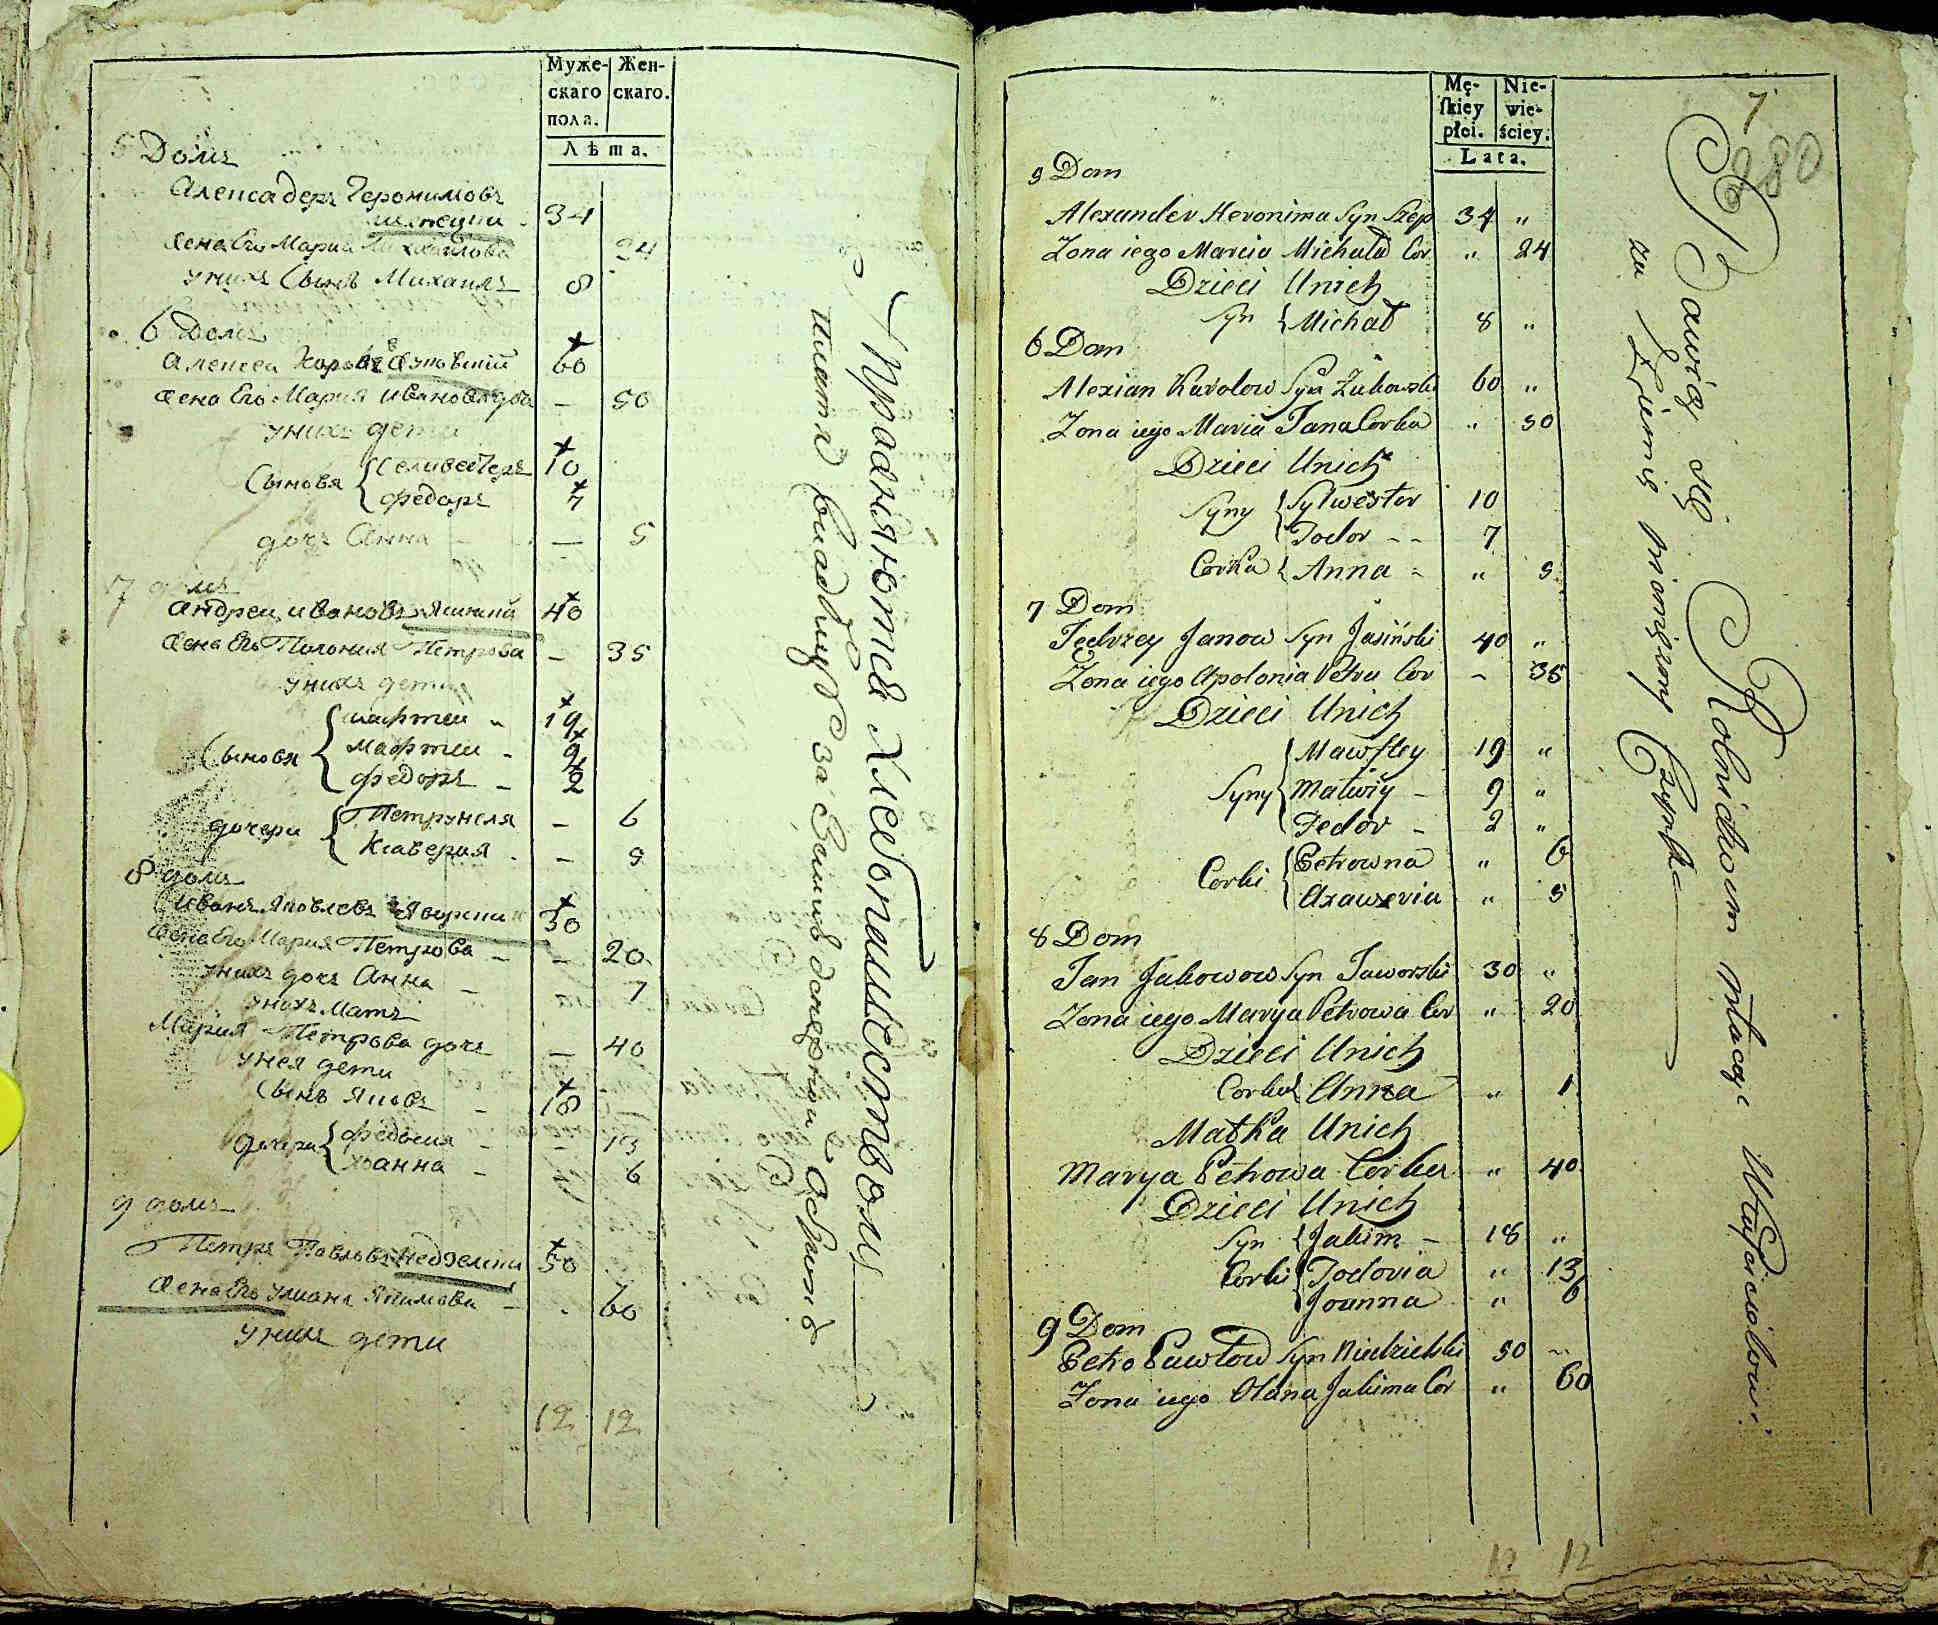 Муже-
скаго
пола.
Жен-
скаго.
Лѣта.
5 Домъ
Александеръ Геронимовъ
34
жена Его Марии Михайлова 24
у нихъ Сынъ Михаилъ 8
6 Домъ
Алексеи Каровъ Жуковский 60
жена Его Мария Иванова доч — 50
у нихъ дети
Сыновя { Селивестеръ 10
Федоръ 7
дочь Анна — — 5
7 домъ
Андреи Ивановъ Ясинский 40
жена Его Полония Петрова — 35
у нихъ дети
Сыновя { Мафтеи 19
Мафтеи - 9
Федоръ - 2
дочери { Петрунеля — 6
Ксаверия - — 5
8 домъ
Иванъ Яковлевъ Яворски 30
жена Его Мария Петрова — — 20
у нихъ дочь Анна — 7
у нихъ Мать
Мария Петрова дочь — 40
у нея дети
Сынъ Якивъ - 18
дочери { Федосия - - 13
Иоанна - 6
9 домъ
Петръ Павловъ Недзелски 50
жена Его Улиана Якимова — - 60
у нихъ дети
12 12
Упражняются хлебопашеством
платя владелцу за землю денежной оброкъ
Mę-
skiey
płci.
Nie-
wie-
ściey.
Lata.
7
280
9 Dom
Alexander Heronima Syn Szep 34 "
Zona iego Marcia Michała Cor " 24
Dzieci Unich
Syn { Michał 8 "
6 Dom
Alexian Karolow Syn Żukowski 60 "
Zona iego Maria Jana Corka " 50
Dzieci Unich
Syny { Sylwester 10
Todor - - 7
Corka { Anna - " 5
7 Dom
Jedrzey Janow Syn Jasiński 40 "
Zona iego Apolonia Petra Cor - 35
Dzieci Unich
Syny { Mawftey 19 "
Matwiy - 9 "
Fedor - 2 "
Corki { Petrowna " 6
Axawervia " 5
8 Dom
Jan Jakowow Syn Jaworski 30 "
Zona iego Marya Petrowa Cor " 20
Dzieci Unich
Corka { Anna " 1
Matka Unich
Marya Petrowa Corka " 40
Dzieci Unich
Syn { Jakim - 18 "
Corki { Todovia " 13
Joanna " 6
9 Dom
Petro Pawłow Syn Niedzielski 50 "
Zona iego Olana Jakima Cor " 60
Bawią się Rolnictwem płacąc Właścicielowi
za Ziemię pieniężny Czynsz
12 12